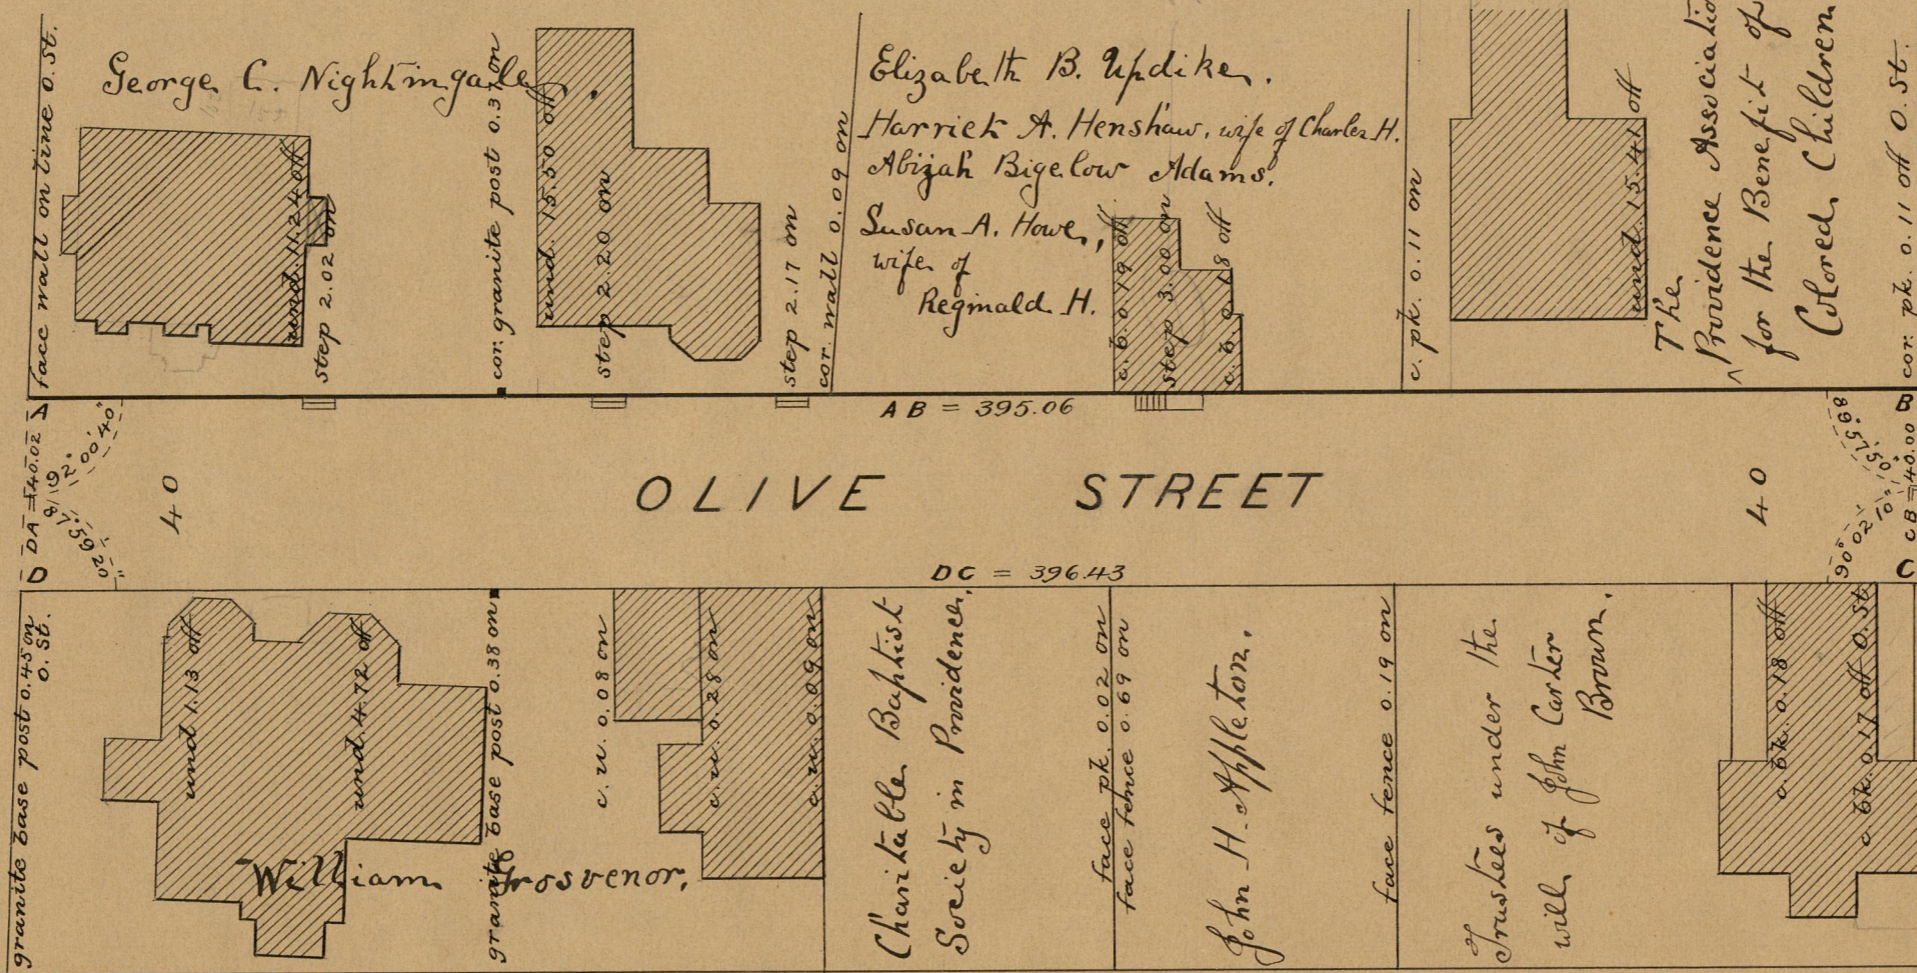 face wall on line O. St.
George C. Nightingale.
und. 11.24 off
step 2.02 on
cor. granite post 0.37 on
und. 15.50 off
step 2.20 on
step 2.17 on
cor. wall 0.09 on
Elizabeth B. Updike.
Harriet A. Henshaw, wife of Charles H.
Abijah Bigelow Adams.
Susan A. Howe,
wife of
Reginald H.
c. b. 0.19 off
step 3.00 on
c. b. 0.18 off
c. pk. 0.11 on
und. 15.41 off
The
Providence Associatio
for the Benefit of
Colored Children
cor. pk. 0.11 off O. St.
A
AB = 395.06
B
DA = 40.02
40
OLIVE STREET
40
CB = 40.00
90° 02' 10"
D
DC = 396.43
C
granite base post 0.45 on
O. St.
und. 1.13 off
und. 4.72 off
William Grosvenor.
granite base post 0.38 on
c. u. 0.08 on
c. u. 0.28 on
c. u. 0.09 on
Charitable Baptist
Society in Providence,
face pk. 0.02 on
face fence 0.69 on
John H. Appleton.
face fence 0.19 on
Trustees under the
will of John Carter
Brown.
c. bk. 0.18 off
c bk. 0.17 off O. St.